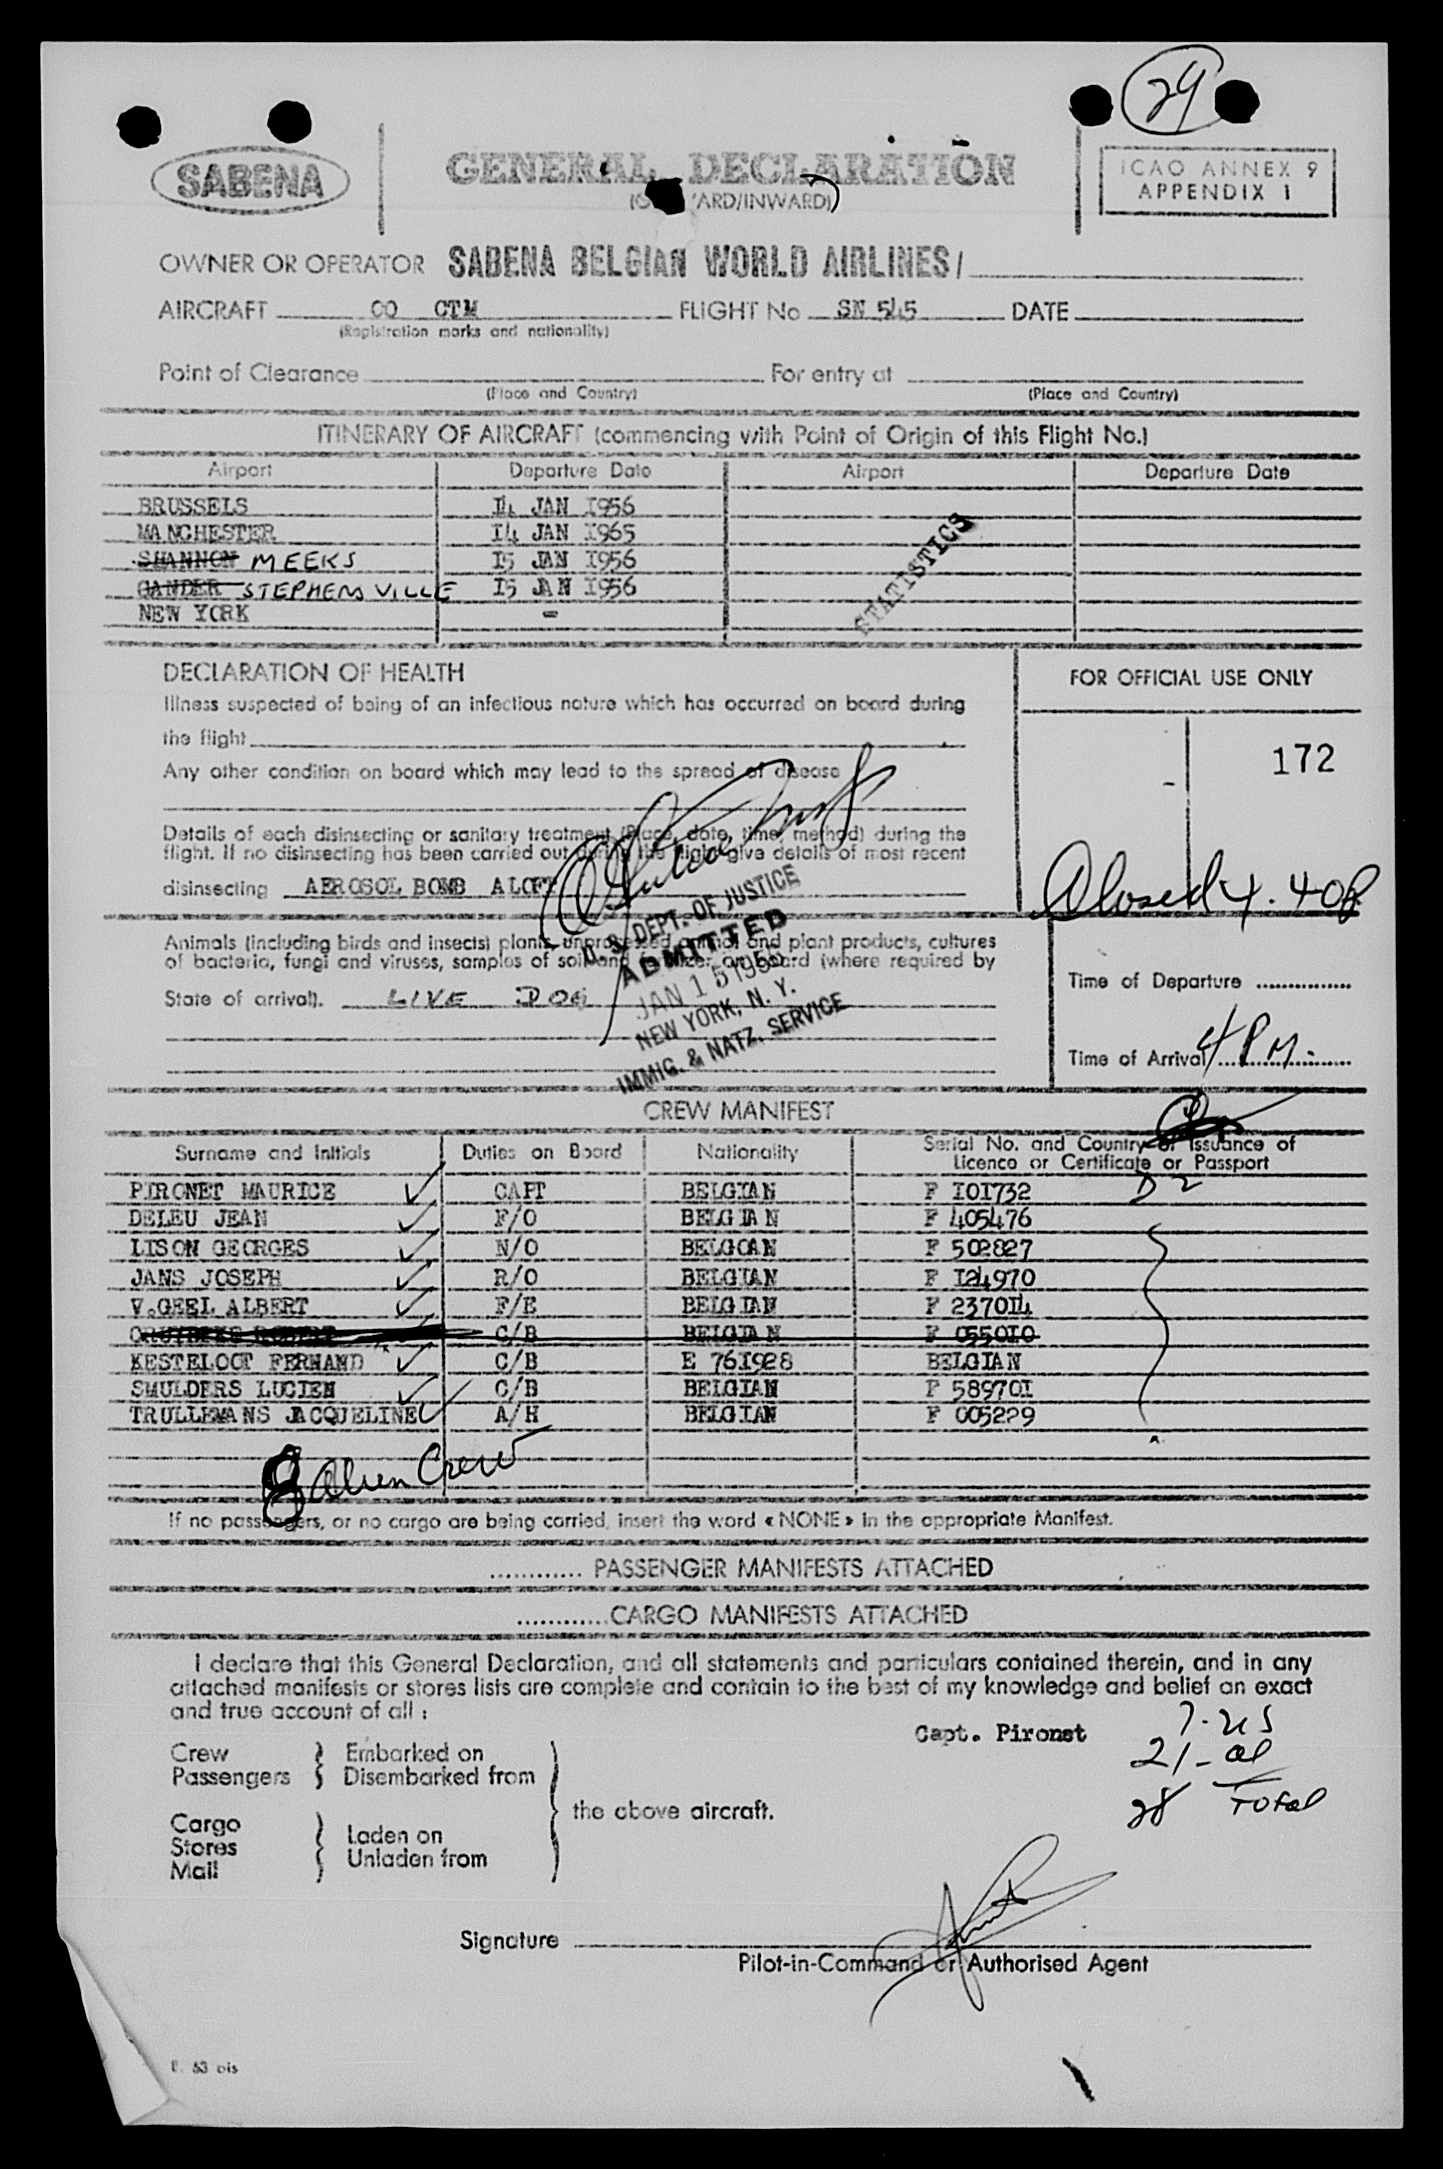 29
SABENA
GENERAL DECLARATION
ICAO ANNEX 9
APPENDIX 1
'ARD/INWARD)
OWNER OR OPERATOR SABENA BELGIAN WORLD AIRLINES/
AIRCRAFT OO CTM FLIGHT No SN 545 DATE
(Registration marks and nationality)
Point of Clearance For entry at
(Place and Country) (Place and Country)
ITINERARY OF AIRCRAFT (commencing with Point of Origin of this Flight No.)
Airport Departure Date Airport Departure Date
BRUSSELS I4 JAN I956
MANCHESTER I4 JAN I965
SHANNON MEEKS I5 JAN I956
GANDER STEPHENSVILLE I5 JAN I956
NEW YORK -
STATISTICS
DECLARATION OF HEALTH
FOR OFFICIAL USE ONLY
Illness suspected of being of an infectious nature which has occurred on board during
the flight
172
Any other condition on board which may lead to the spread of disease
Details of each disinsecting or sanitary treatment (Place, date, time, method) during the
flight. If no disinsecting has been carried out during the flight give details of most recent
disinsecting AEROSOL BOMB ALOFT
Closed 4.40P
U. S. DEPT. OF JUSTICE
ADMITTED
JAN 15 1956
NEW YORK, N. Y.
IMMIG. & NATZ. SERVICE
Animals (including birds and insects) plants unprocessed animal and plant products, cultures
of bacteria, fungi and viruses, samples of soil and fertilizer on board (where required by
State of arrival). LIVE DOG
Time of Departure ...............
Time of Arrival 4 PM
CREW MANIFEST
Surname and Initials Duties on Board Nationality Serial No. and Country of Issuance of
Licence or Certificate or Passport
PIRONET MAURICE CAPT BELGIAN F IOI732 D2
DELEU JEAN F/O BELGIAN F 405476
LISON GEORGES N/O BELGOAN F 502827
JANS JOSEPH R/O BELGIAN F I24970
V.GEEL ALBERT F/E BELGIAN F 2370I4
C/B BELGIAN F 0550I0
KESTELOOT FERNAND C/B E 76I928 BELGIAN
SMULDERS LUCIEN C/B BELGIAN F 58970I
TRULLEMANS JACQUELINE A/H BELGIAN F 005229
8 Alien Crew
If no passengers, or no cargo are being carried, insert the word « NONE » in the appropriate Manifest.
............ PASSENGER MANIFESTS ATTACHED
............ CARGO MANIFESTS ATTACHED
I declare that this General Declaration, and all statements and particulars contained therein, and in any
attached manifests or stores lists are complete and contain to the best of my knowledge and belief an exact
and true account of all :
Capt. Pironet
7-US
21-al
28 Total
Crew Embarked on
Passengers Disembarked from
the above aircraft.
Cargo
Stores Laden on
Mail Unladen from
Signature
Pilot-in-Command or Authorised Agent
53 bis